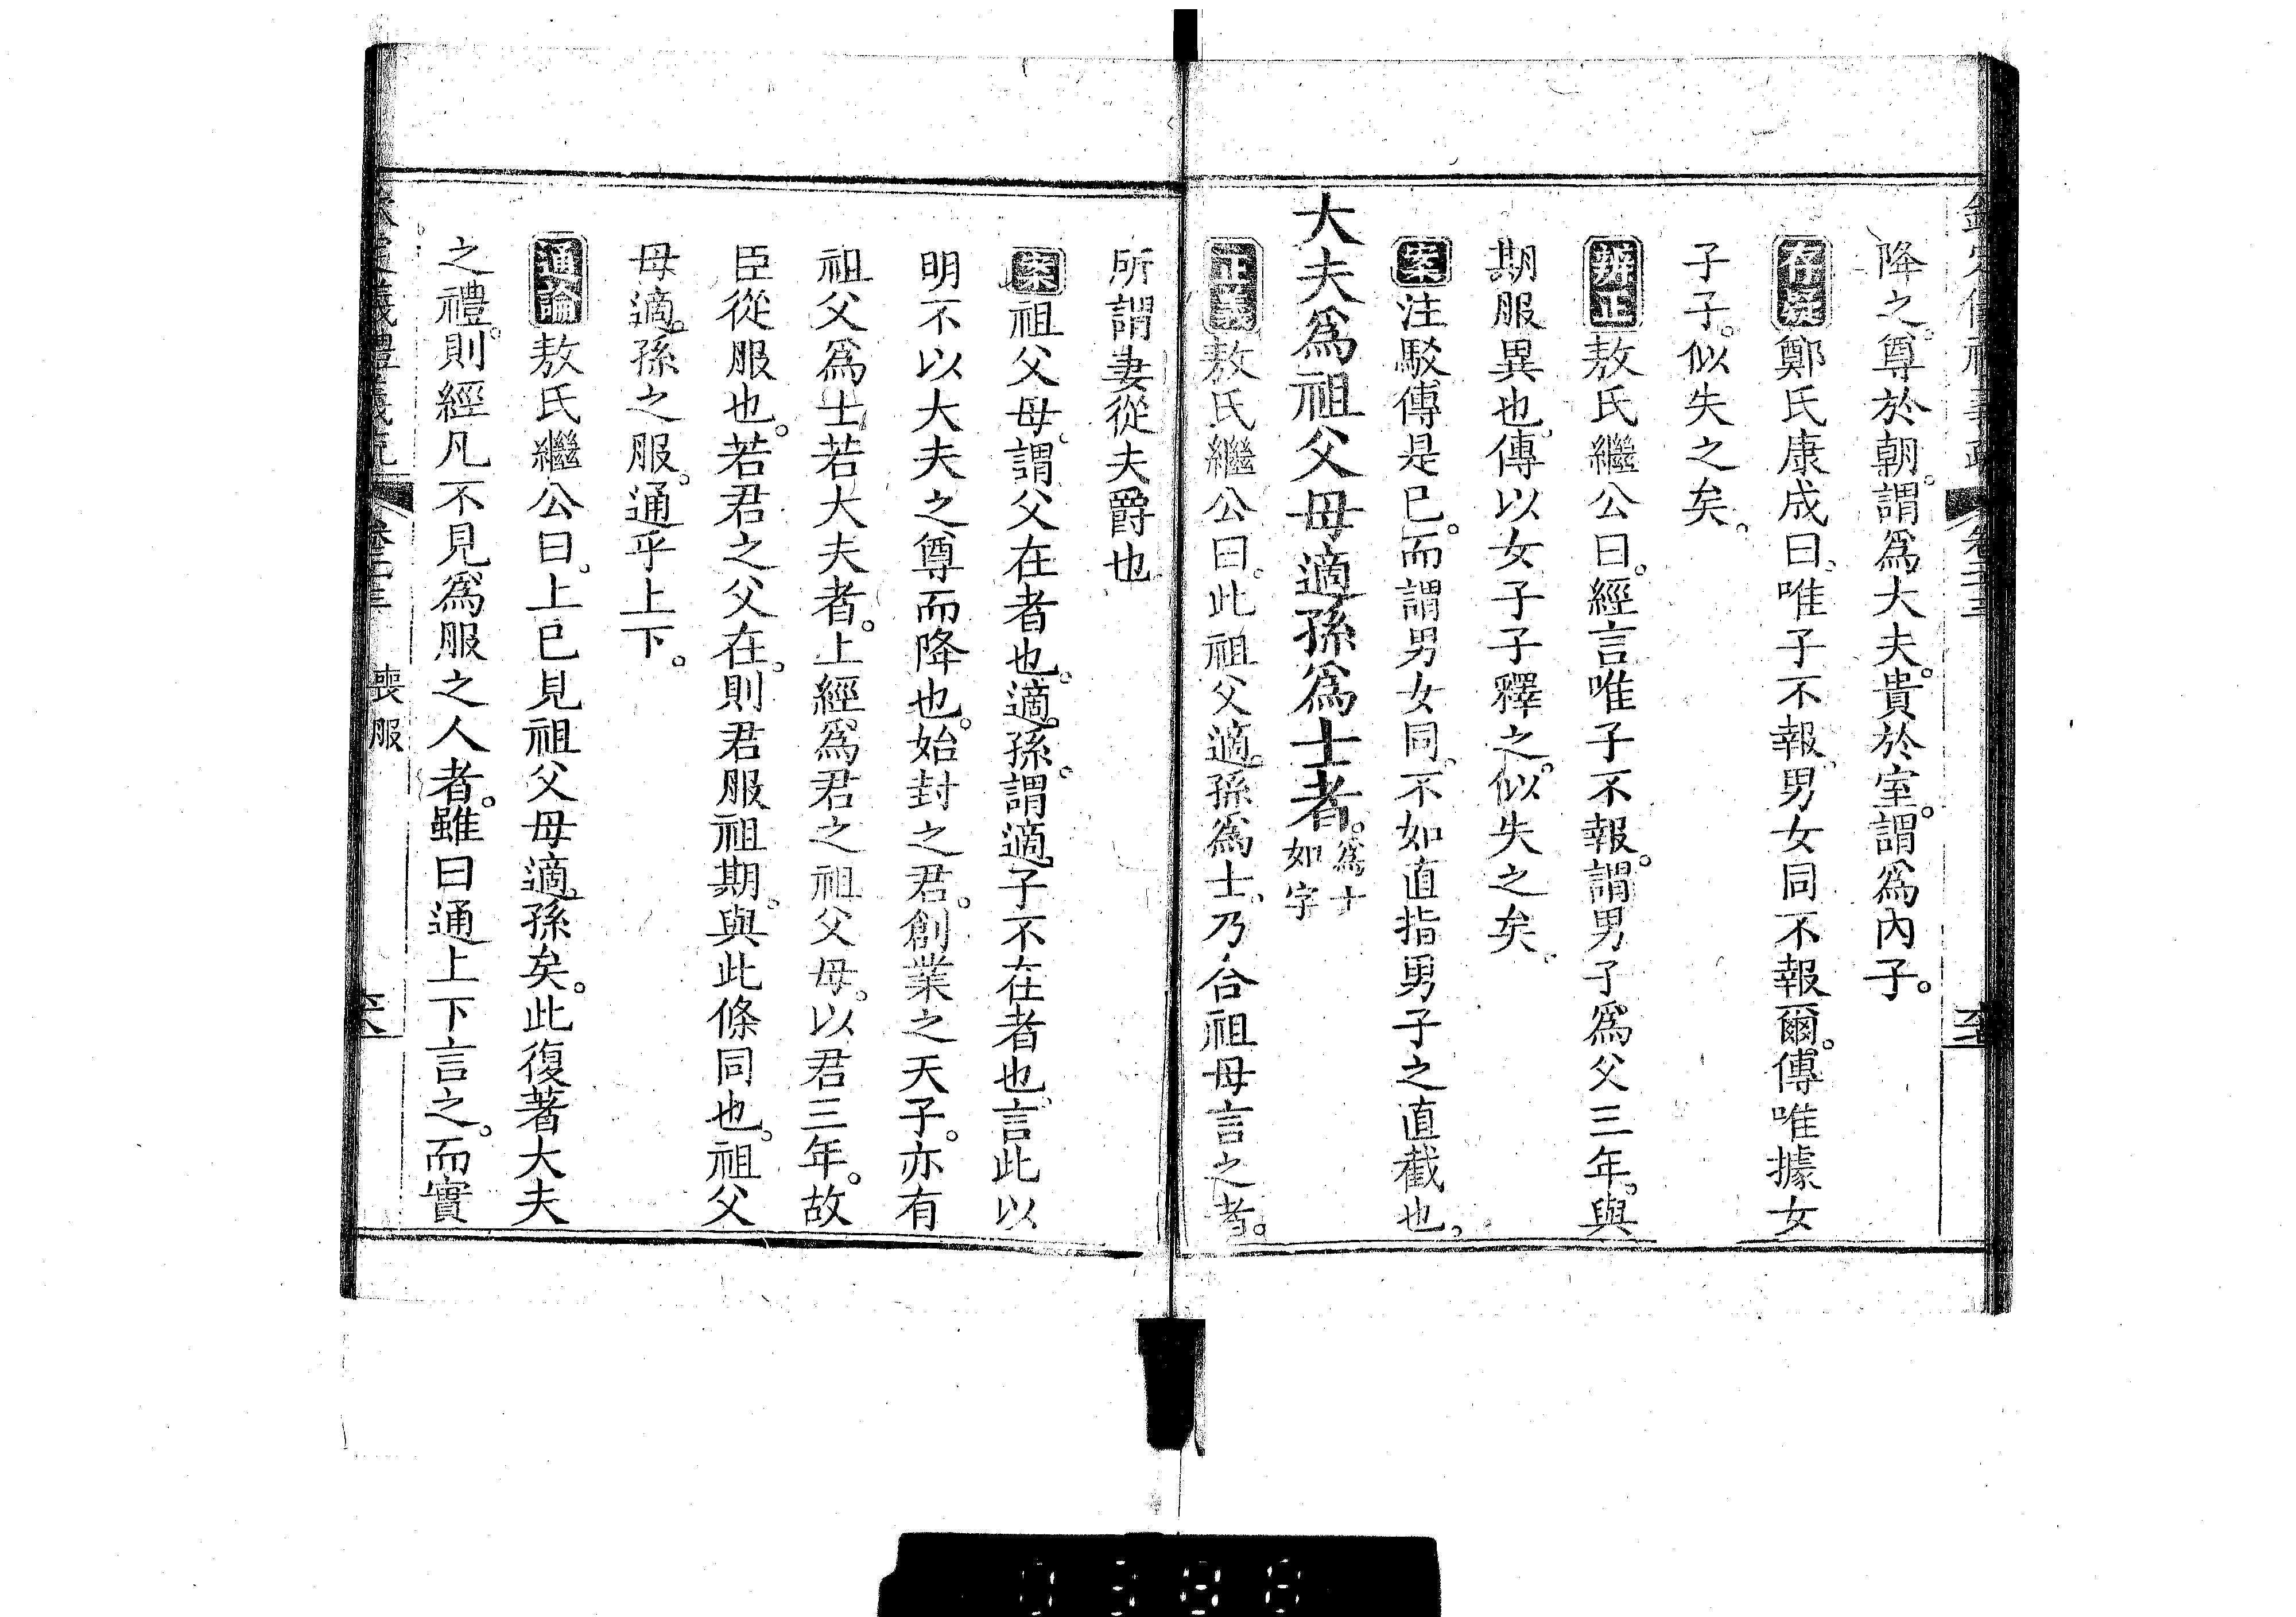 降之。尊於朝。謂爲大夫。貴於室。謂爲內子。
存疑鄭氏康成曰、唯子不報、男女同不報爾。傳唯據女
子子。似失之矣。
辨正敖氏繼公曰。經言唯子不報。謂男子爲父三年。與
期服異也。傳以女子子釋之。似失之矣。
案注駁傳是已。而謂男女同。不如直指男子之直截也。
大夫爲祖父母適孫爲士者。爲士如字
正義敖氏繼公曰。此祖父適。孫爲士、乃合祖母言之者。
所謂妻從夫爵也
案祖父母、謂父在者也。適。孫。謂適子不在者也。言此以
明不以大夫之尊而降也。始封之君。創業之天子。亦有
祖父爲士若大夫者。上經。爲君之祖父母。以君三年。故
臣從服也。若君之父在。則君服祖期。與此條同也。祖父
母適。孫之服。通乎上下。
通論敖氏繼公曰。上已見祖父母適。孫矣。此復著大夫
之禮。則經凡不見爲服之人者。雖曰通上下言之。而實
喪服